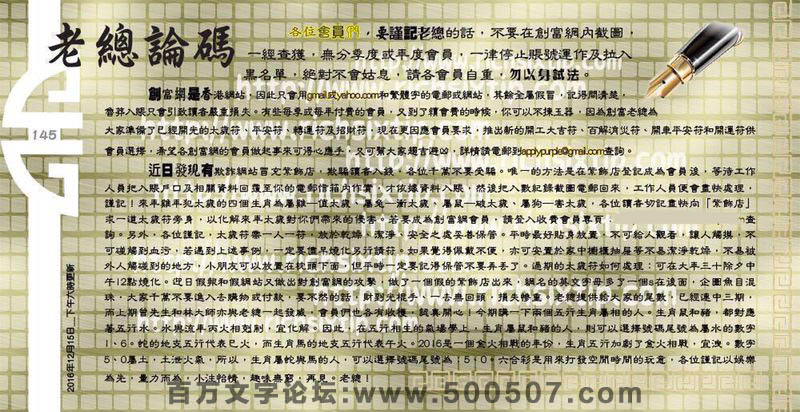 老總論碼
各位會員們，要謹記老總的話，不要在創富網內截圖，
一經查獲，無分季度或年度會員，一律停止賬號運作及拉入
黑名單，絕對不會姑息，請各會員自重，勿以身試法。
創富網是香港網站，因此只會用gmail或yahoo.com和繁體字的電郵或網站，其餘全屬假冒，記得開清楚，
魯莽入賬只會引致讀者嚴重損失。有些每季或每年付費的會員，又到了續會費的時候，你可以不揀玉器，因為創富老總為
大家準備了已經開光的太歲符、平安符、轉運符及招財符。現在更因應會員要求，推出新的開工大吉符、百解消災符、開車平安符和開運符供
會員選擇，希望各創富網的會員做起事來可得心應手，又可幫大家趨吉避凶，詳情請電郵到applypurple@gmail.com查詢。
近日發現有欺詐網站冒充紫飾店，欺騙讀者入錢，各位千萬不要受騙。唯一的方法是在紫飾店登記成為會員後，等待工作
人員把入賬戶口及相關資料回覆至你的電郵信箱內作實，才依據資料入賬，然後把入數紀錄截圖電郵回來，工作人員便會盡快處理，
謹記！來年雞年犯太歲的四個生肖為屬雞—值太歲、屬兔—衝太歲、屬鼠—破太歲、屬狗—害太歲，各位讀者切記盡快向「紫飾店」
求一道太歲符旁身，以化解來年太歲對你們帶來的侵害。若要成為創富網會員，請登入收費會員專頁 查
詢。另外，各位謹記，太歲符需一人一符，放於乾燥、潔淨、安全之處妥善保管。平時最好貼身放置，不可給人觀看，讓人觸摸，不
可碰觸到血污，若遇到上述事例，一定要儘早燒化另行請符。如果覺得佩戴不便，亦可安置於家中櫥櫃抽屜等不易潔淨乾燥，不易被
外人觸碰到的地方，小朋友可以放置在枕頭下面，但平時一定要記得保管不要弄丟了。過期的太歲符如何處理，可在大年三十除夕中
午12點燒化。近日假鬼和假網站又做出對創富網的攻擊，做了一個假的紫飾店出來，網名的英文字母多了一個s在後面，企圖魚目混
珠，大家千萬不要進入去購物或付款，要不然的話，財到光棍手，一去無回頭，損失慘重。老總提供給大家的尾數，已經連中三期，
而上期曾先生和林大師亦與老總一起發威，會員們也各有收穫，認真開心，今期講一下兩個五行生肖屬相的人。生肖屬鼠和豬，都對應
著五行水。水與流年丙火相剋制，宜化解，因此，從五行和流年的氣場學上，生肖屬鼠和豬的人，則可以選擇號碼尾號為屬水的數字
1、6。蛇的地支五行代表巳火，而生肖馬的地支五行代表午火。2016是一個金火相戰的年份，生肖五行加劇了金火相戰，宜洩。數字
5、0屬土，土泄火氣，所以，生肖屬蛇與馬的人，可以選擇號碼尾號為「5、0」。六合彩是用來打發空閒時間的玩意，各位謹記以娛樂
為先，量力而為，小注怡情，趣味無窮，再見。老總！
145
2016年12月15日__下午六時更新
百万文字论坛:www.500507.com